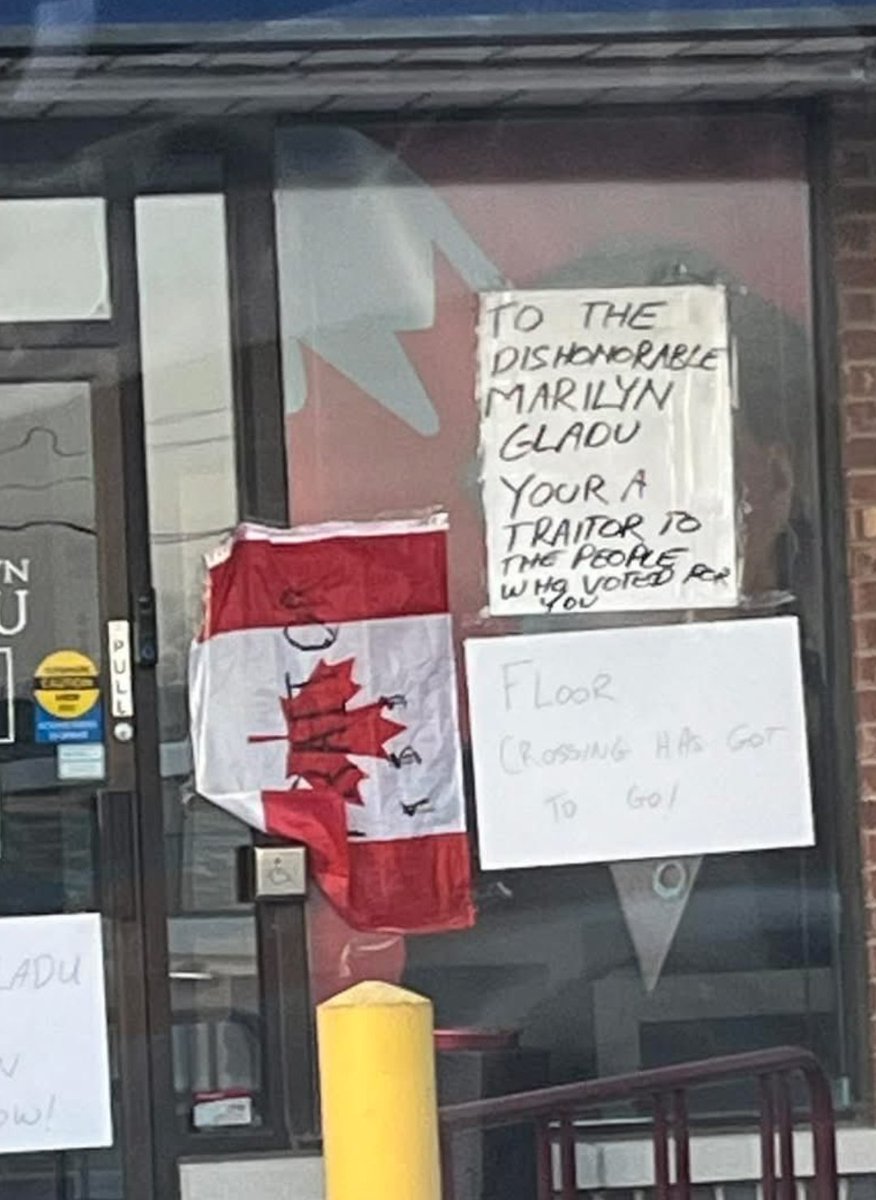 TO THE
DISHONORABLE
MARILYN
GLADU
YOUR A
TRAITOR TO
THE PEOPLE
WHO VOTED FOR
YOU
FLOOR
CROSSING HAS GOT
TO GO!
PULL
CAUTION
LADU
OW!